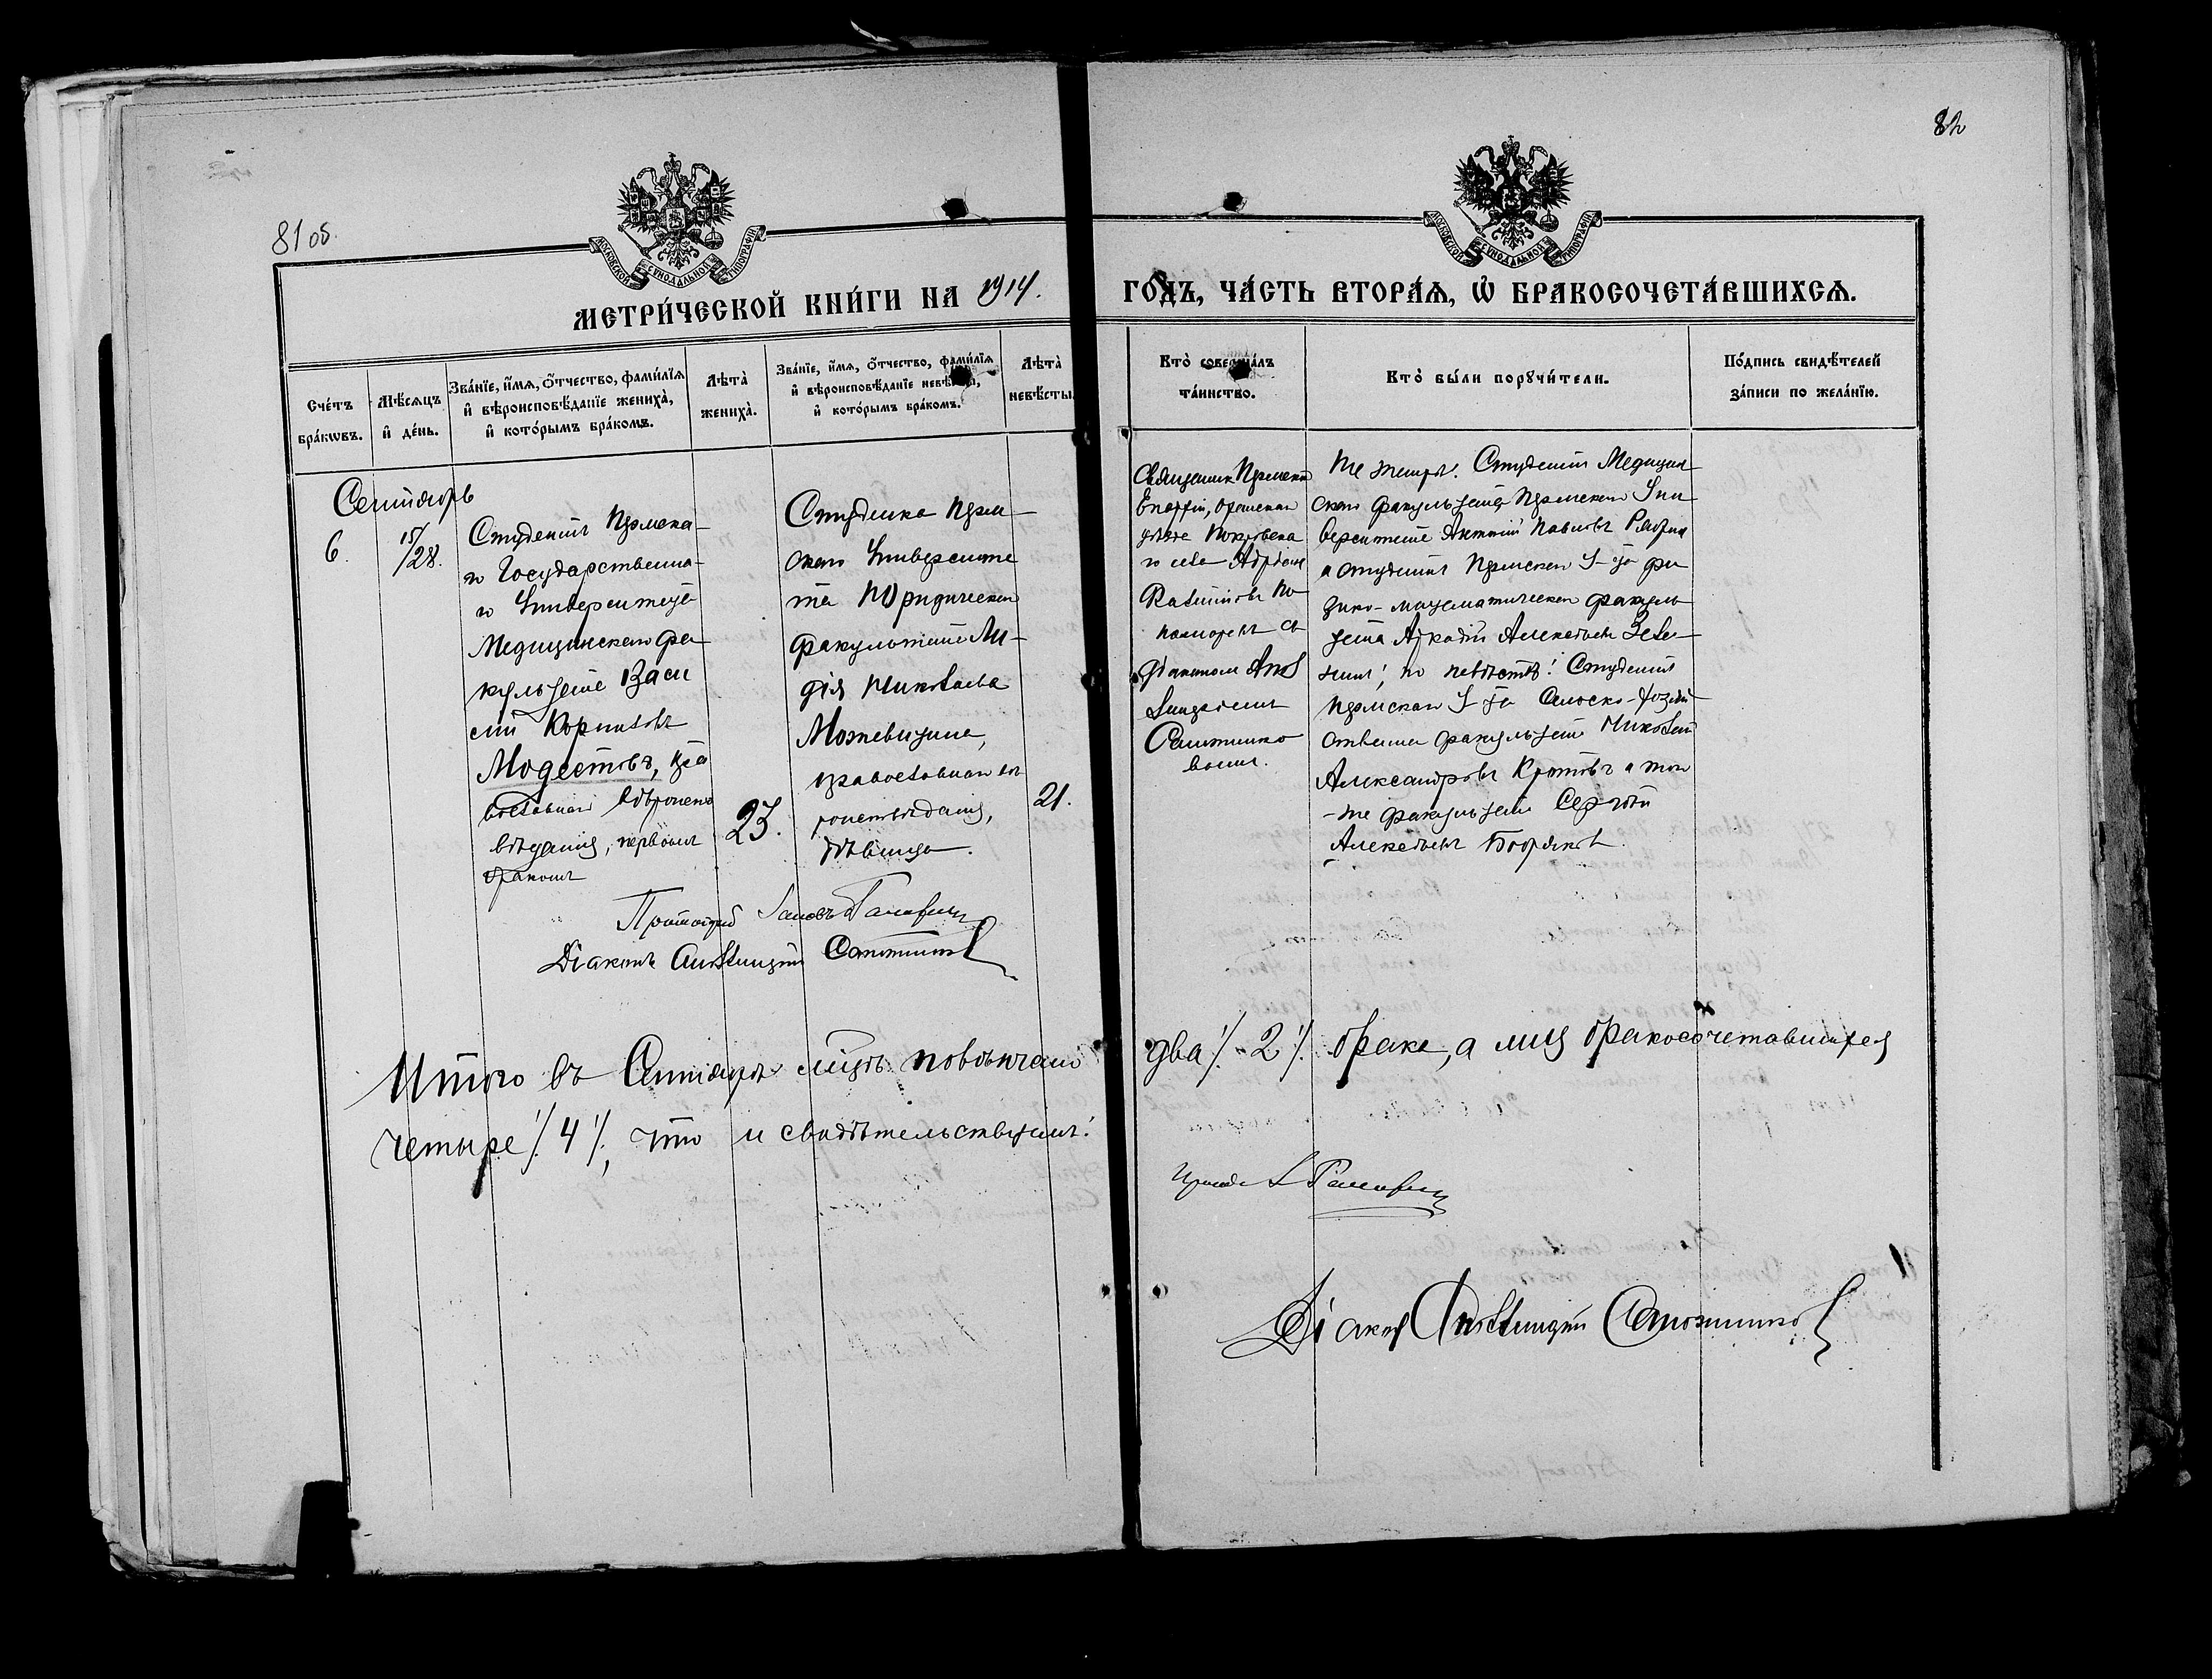 81 об.
82
МОСКОВСКОЙ СѴНОДАЛЬНОЙ ТИПОГРАФІИ
МОСКОВСКОЙ СѴНОДАЛЬНОЙ ТИПОГРАФІИ
МЕТРИ́ЧЕСКОЙ КНИ́ГИ НА 1914.
ГОДЪ, ЧА́СТЬ ВТОРА́Я, Ѡ БРАКОСОЧЕТА́ВШИХСЯ.
Сче́тъ
бра́кѡвъ.
Мѣ́сяцъ
и҆ де́нь.
Зва́нїе, и҆́мя, ѻ҆́тчество, фами́лїя
и҆ вѣроисповѣ́данїе жениха̀,
и҆ кото́рымъ бра́комъ.
Лѣта̀
жениха̀.
Зва́нїе, и҆́мя, ѻ҆́тчество, фами́лїя
и҆ вѣроисповѣ́данїе невѣ́сты,
и҆ кото́рымъ бра́комъ.
Лѣта̀
невѣ́сты.
Кто̀ соверша́лъ
та́инство.
Кто̀ бы́ли порꙋчи́тели.
По́дпись свидѣ́телей
за́писи по жела́нїю.
Сентябрь
6.
15/28.
Студентъ Пермска-
го Государственна-
го Университета
Медицинскаго фа-
культета Васи
лій Корниловъ
Модестовъ, пра
вославнаго вѣроиспо
вѣданія, первымъ
бракомъ
23.
Студентка Перм-
скаго Университе
та Юридическаго
факультета Ли-
дія Николаева
Можевитина,
православнаго вѣ
роисповѣданія,
дѣвица.
21.
Священникъ Пермской
Епархіи, Оханскаго
уѣзда Покровска
го села
съ
Діакономъ Апол
линаріемъ
Сапожнико
вымъ.
По женихѣ: Студентъ Медицин
скаго факультета Пермскаго Уни
верситета Павловъ
и студентъ Пермскаго У-та фи
зико-математическаго факуль
тета Аркадій Алексѣевъ
по невѣстѣ: Студентъ
Пермскаго У-та Сельско-хозяй
ственнаго факультета Николай
Александровъ Кротовъ и того
-же факультета Сергѣй
Алексѣевъ
Протоіерей
Діаконъ Аполлинарій Сапожниковъ
Итого въ Сентябрѣ мѣсяцѣ повѣнчано
два /.2/. брака, а лицъ бракосочетавшихся
четыре /.4/., что и свидѣтельствуемъ:
Діаконъ Аполлинарій Сапожниковъ